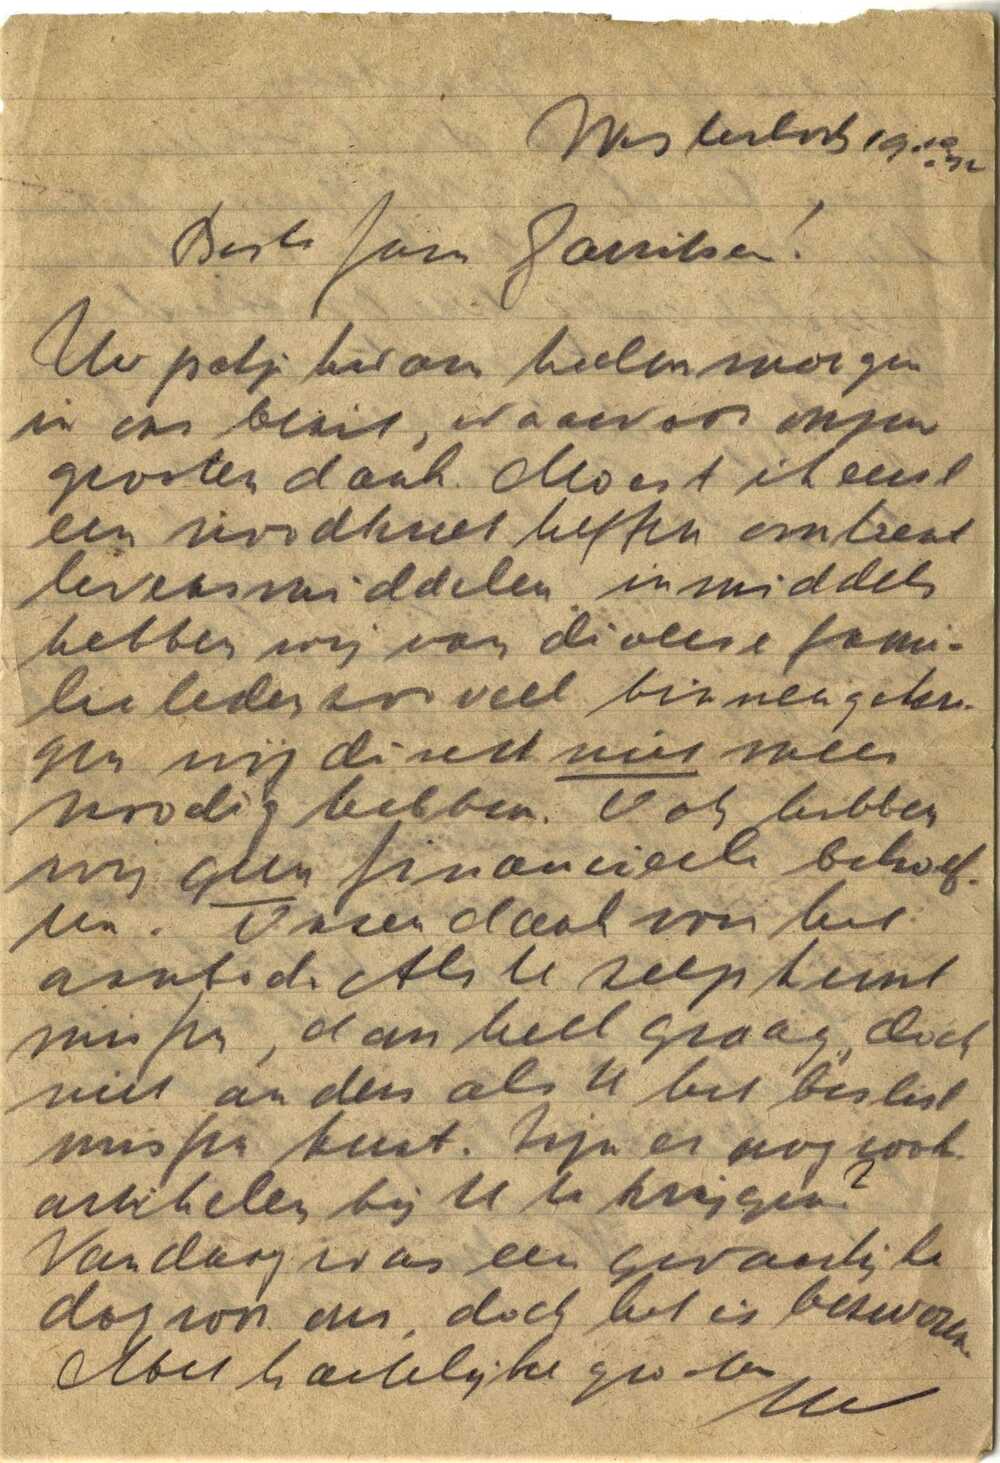 Westerbork 19.10.42
Beste fam Gerritsen!
Uw pakje kwam heden morgen
in ons bezit, waarvoor onzen
grooten dank. Moest ik eerst
een noodkreet heffen omtrent
levensmiddelen, inmiddels
hebben wij van diverse fami-
lieleden zooveel binnengekre-
gen wij direkt niet meer
noodig hebben. Ook hebben
wij geen financieele behoef-
ten. Onzen dank voor het
aanbod. Als U zeep kunt
missen, dan heel graag, doch
niet anders als U het beslist
missen kunt. Zijn er nog rook
artikelen bij U te krijgen?
Vandaag was een gevaarlijke
dag voor ons, doch het is bezworen.
Met hartelijke groeten